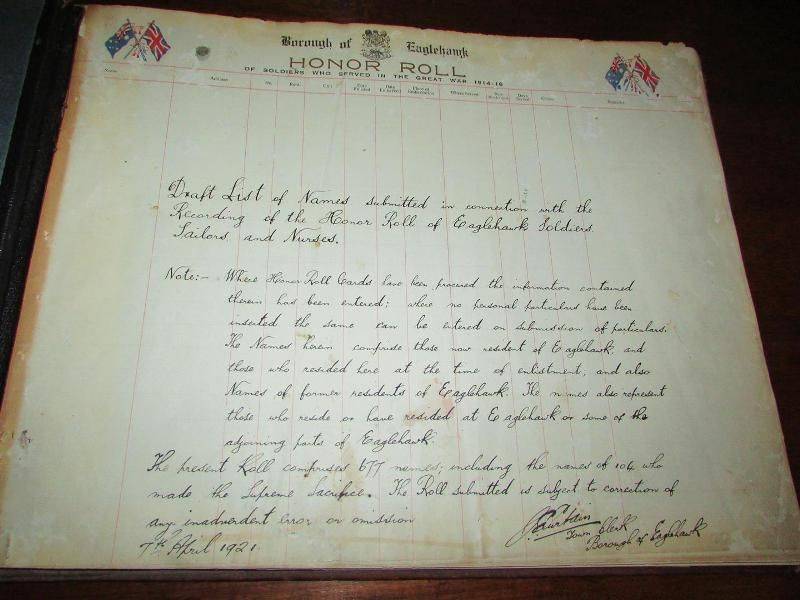 Borough of Eaglehawk
HONOR ROLL
OF SOLDIERS WHO SERVED IN THE GREAT WAR 1914-18
Name Address No. Rank Unit Date Enlisted Place of Embarkation Where Served Days Served Remarks
Draft List of Names submitted in connection with the
Recording of the Honor Roll of Eaglehawk Soldiers
Sailors and Nurses.
Note:- Where Honor Roll Cards have been procured the information contained
therein has been entered; where no personal particulars have been
inserted the same can be entered on submission of particulars.
The Names herein comprise those now resident of Eaglehawk, and
those who resided here at the time of enlistment, and also
Names of former residents of Eaglehawk. The names also represent
those who reside or have resided at Eaglehawk or some of the
adjoining parts of Eaglehawk.
The present Roll comprises 677 names, including the names of 104 who
made the Supreme Sacrifice. The Roll submitted is subject to correction of
any inadvertent error or omission
7th April 1921
Town Clerk
Borough of Eaglehawk